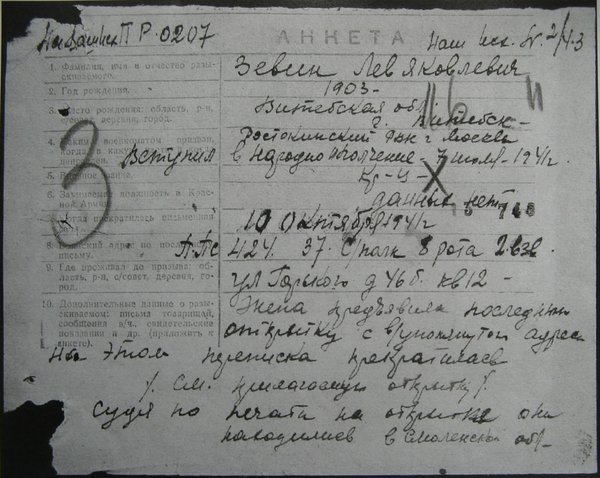 На Ваш исх П Р. 0207
АНКЕТА
Наш исх. № 2/4-3
1. Фамилия, имя и отчество разыскиваемого.
Зевин Лев Яковлевич
2. Год рождения.
1903-
3. Место рождения: область, р-н, деревня, город.
Витебская обл
г. Витебск-
4. Каким военкоматом призван, когда, в каку
Ростокинский РВК г Москвы
Вступил в народно ополчение 7 июля-1941г.
5. звание.
Кр-ц-
6. Занимаемая должность в Красной Армии.
данных нет
7. Когда прекратилась письменная
10 Октября 1941г
8. адрес по последнему письму.
ППС 424. 37. С/полк 8 рота 2. взв.
9. Где проживал до призыва: область, р-н, с/совет, деревня, город.
ул Горького д 46 б. кв 12-
10. Дополнительные данные о разыскиваемом: письма товарищей, сообщения в/ч., свидетельские показания и др. (приложить к анкете).
Жена предъявила последнюю
открытку с в/упомянутым адресом
На этом переписка прекратилась
/. См. прилагаемую открытку /.
Судя по печати на открытке они
находились в Смоленской обл-
3